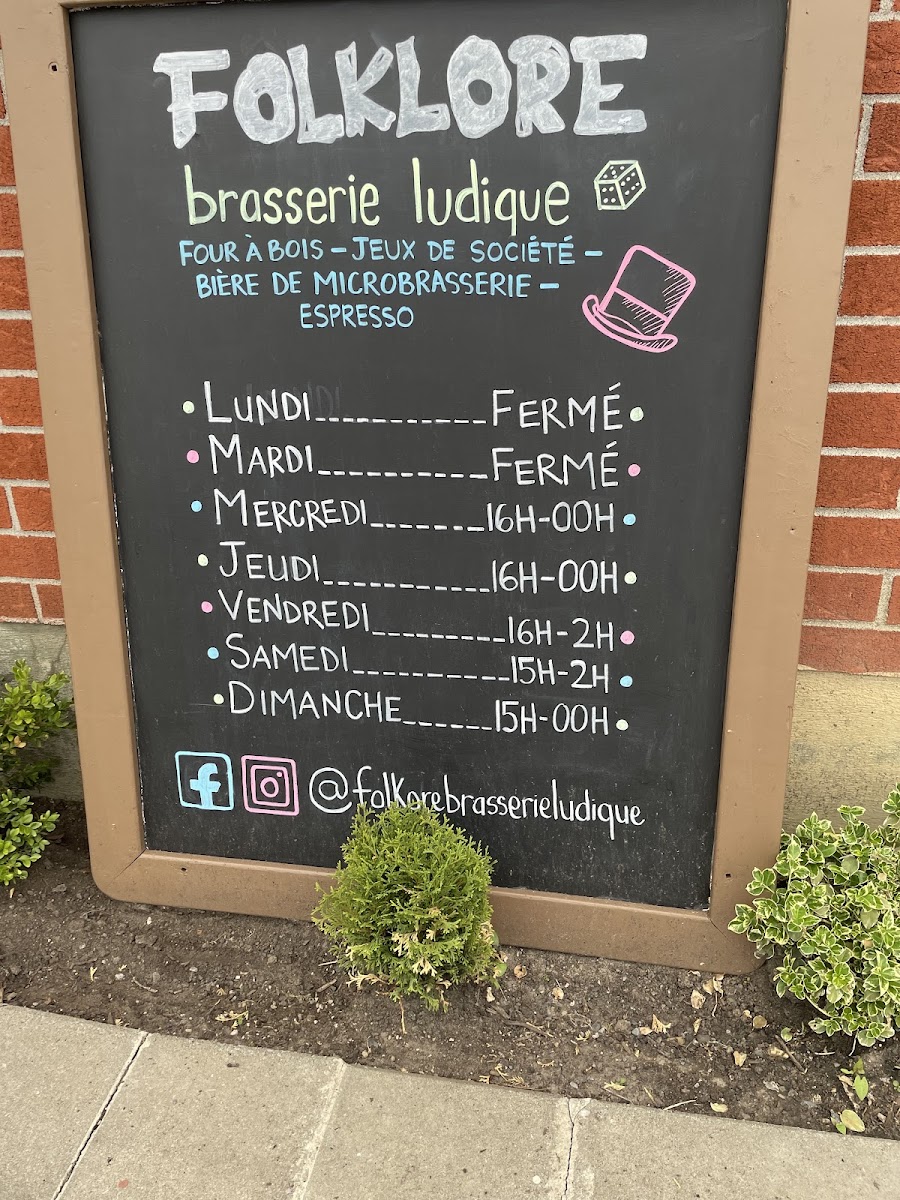 FOLKLORE
brasserie ludique
FOUR À BOIS - JEUX DE SOCIÉTÉ -
BIÈRE DE MICROBRASSERIE -
ESPRESSO
LUNDI__________FERMÉ
MARDI__________FERMÉ
MERCREDI_______16H-00H
JEUDI__________16H-00H
VENDREDI_________16H-2H
SAMEDI__________15H-2H
DIMANCHE______15H-00H
@folkorebrasserieludique